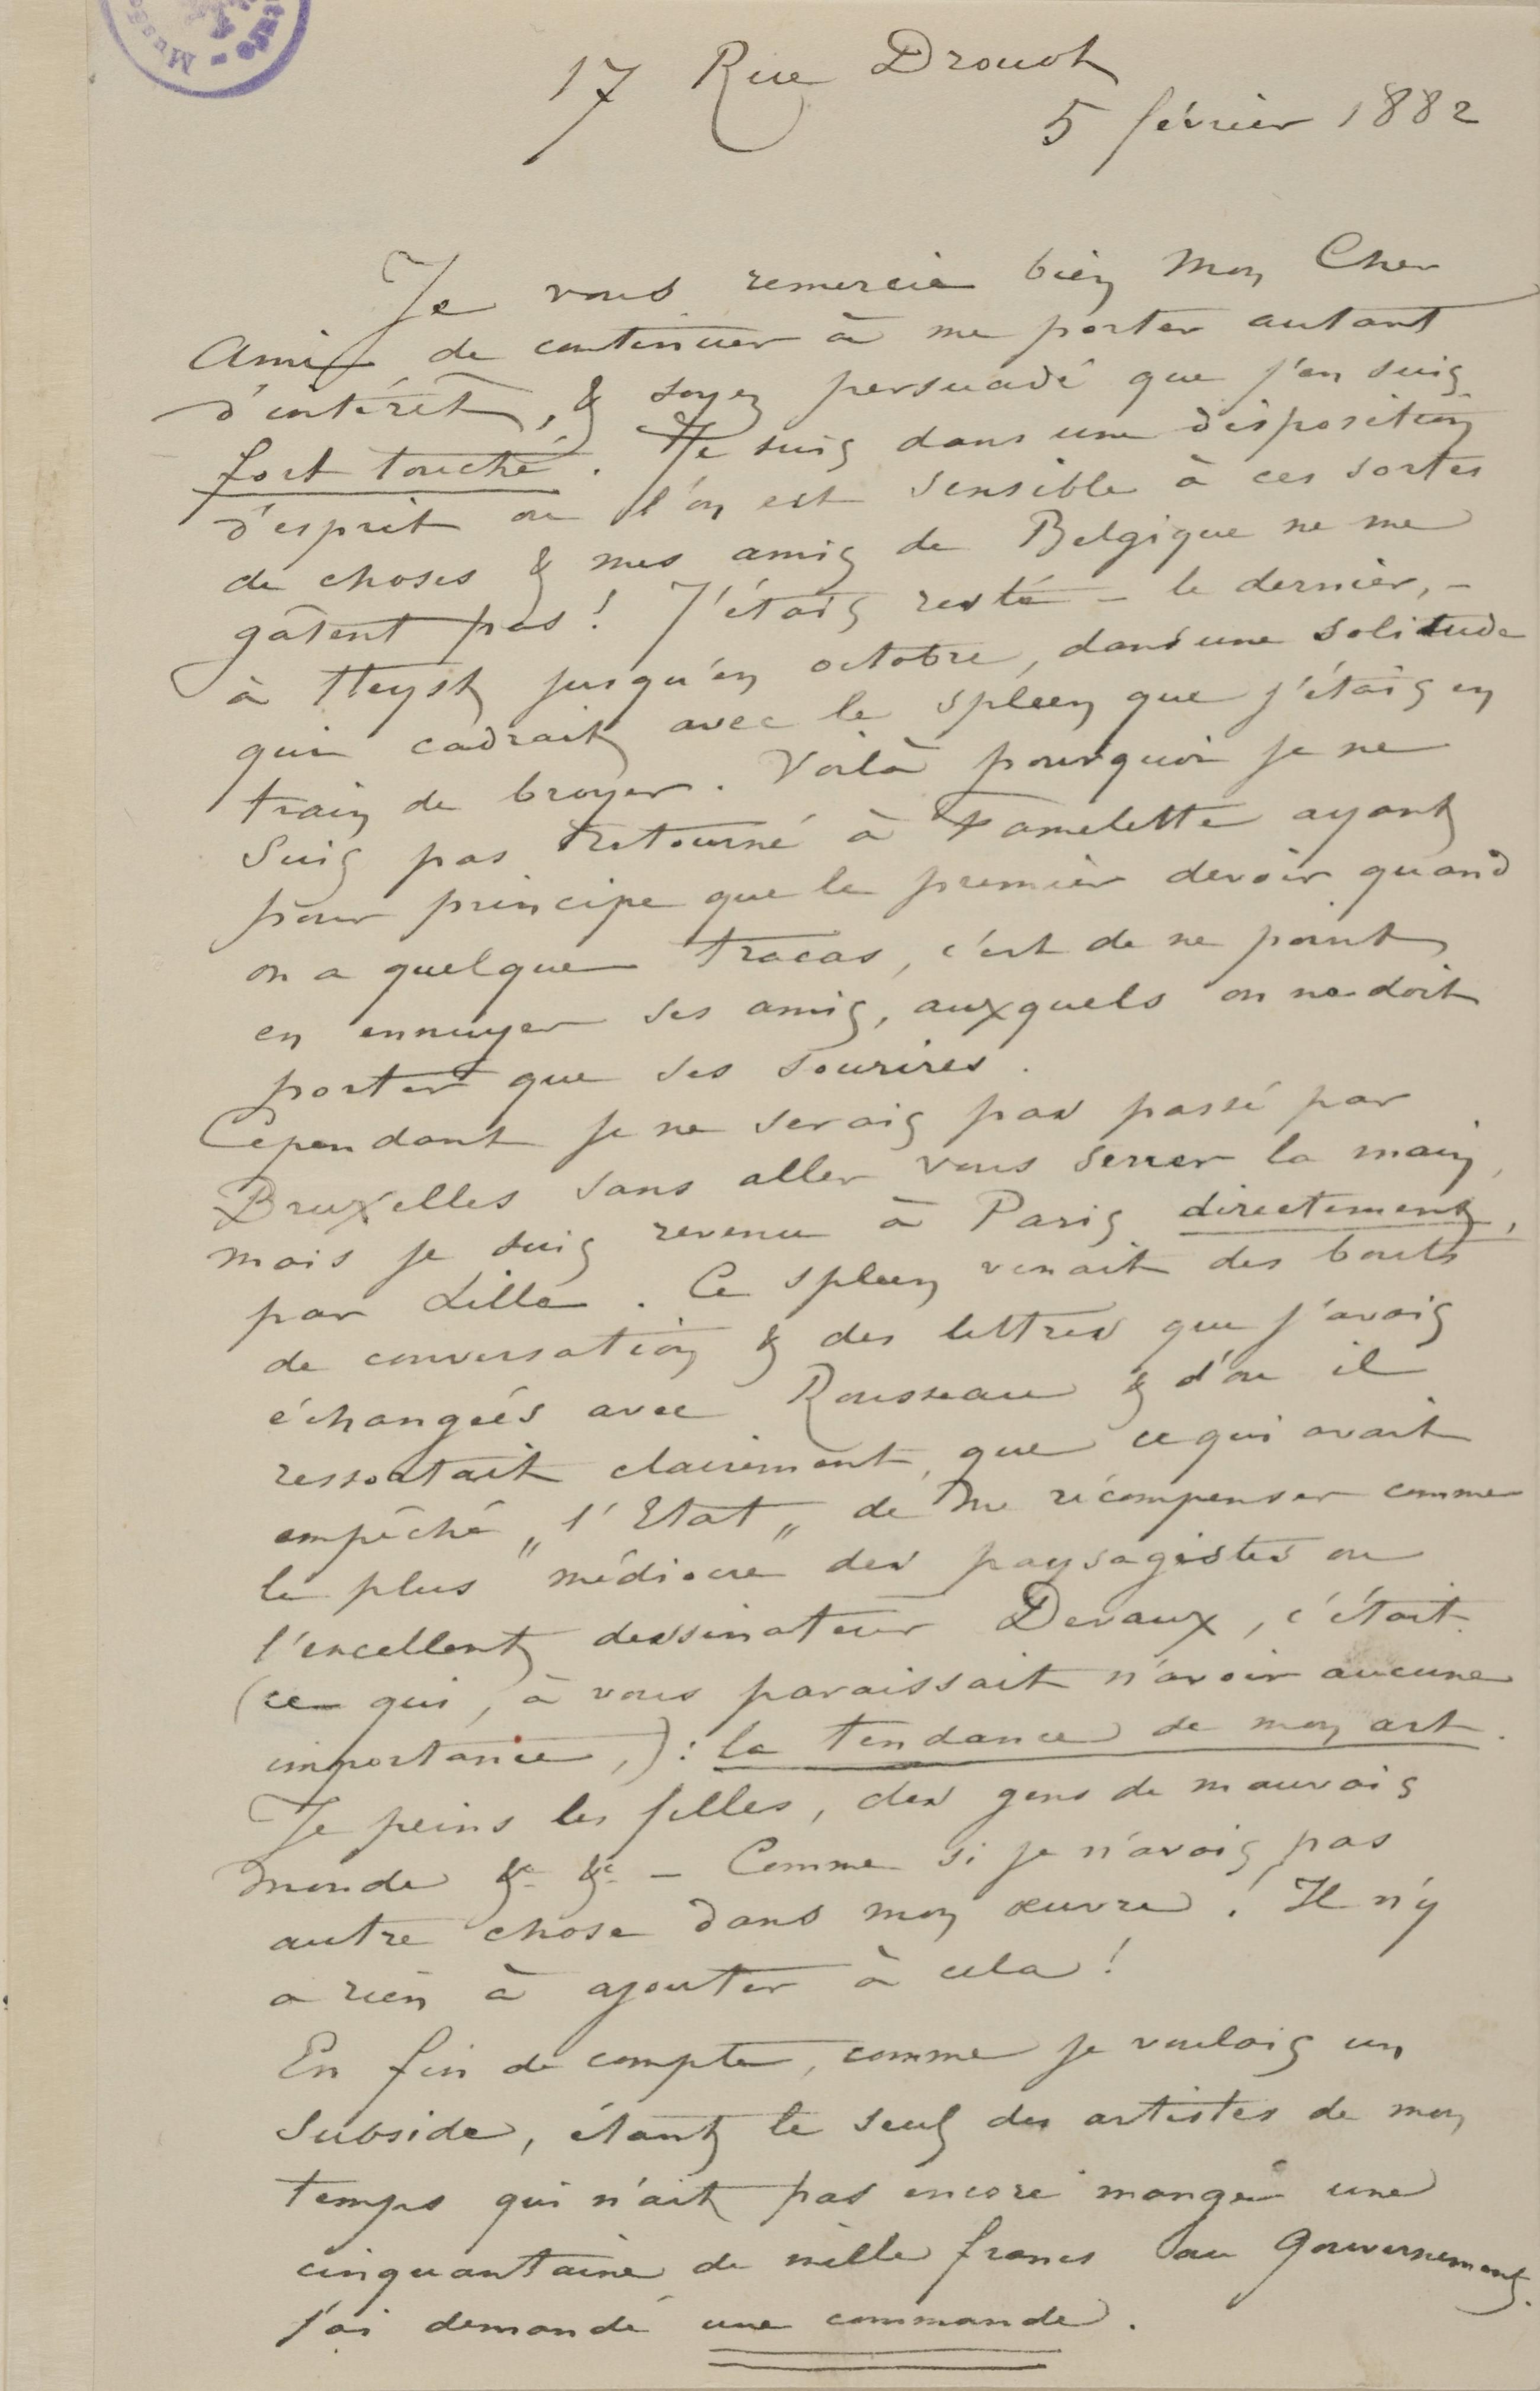 17 Rue Drouot
5 février 1882
Je vous remercie bien Mon Cher
Ami de continuer à me porter autant
d'intérêt, & soyez persuadé que j'en suis
fort touché. Je suis dans une disposition
d'esprit ou l'on est sensible à ces sortes
de choses & mes amis de Belgique ne me
gâtent pas! J'étais resté – le dernier, –
à Heyst jusqu'en octobre, dans une solitude
qui cadrait avec le spleen que j'étais en
train de broyer. Voilà pourquoi je ne
suis pas retourné à Famelette ayant
pour principe que le premier devoir quand
on a quelque tracas, c'est de ne point
en ennuyer ses amis, auxquels on ne doit
porter que ses sourires.
Cependant je ne serais pas passé par
Bruxelles sans aller vous serrer la main,
mais je suis revenu à Paris directement,
par Lille. Ce spleen venait des bouts
de conversation & des lettres que j'avais
échangées avec Rousseau & d'ou il
ressortait clairement, que ce qui avait
empêché „l'Etat„ de me récompenser comme
le plus médiocre des paysagistes ou
l'excellent dessinateur Devaux, c'était
(ce qui, à vous paraissait n'avoir aucune
importance,): la tendance de mon art.
Je peins les filles, des gens de mauvais
monde &c &c – Comme si je n'avais pas
autre chose dans mon œuvre! Il n'y
a rien à ajouter à cela!
En fin de compte, comme je voulais un
subside, étant le seul des artistes de mon
temps qui n'ait pas encore mangé une
cinquantaine de mille francs au Gouvernement.
j'ai demandé une commande.